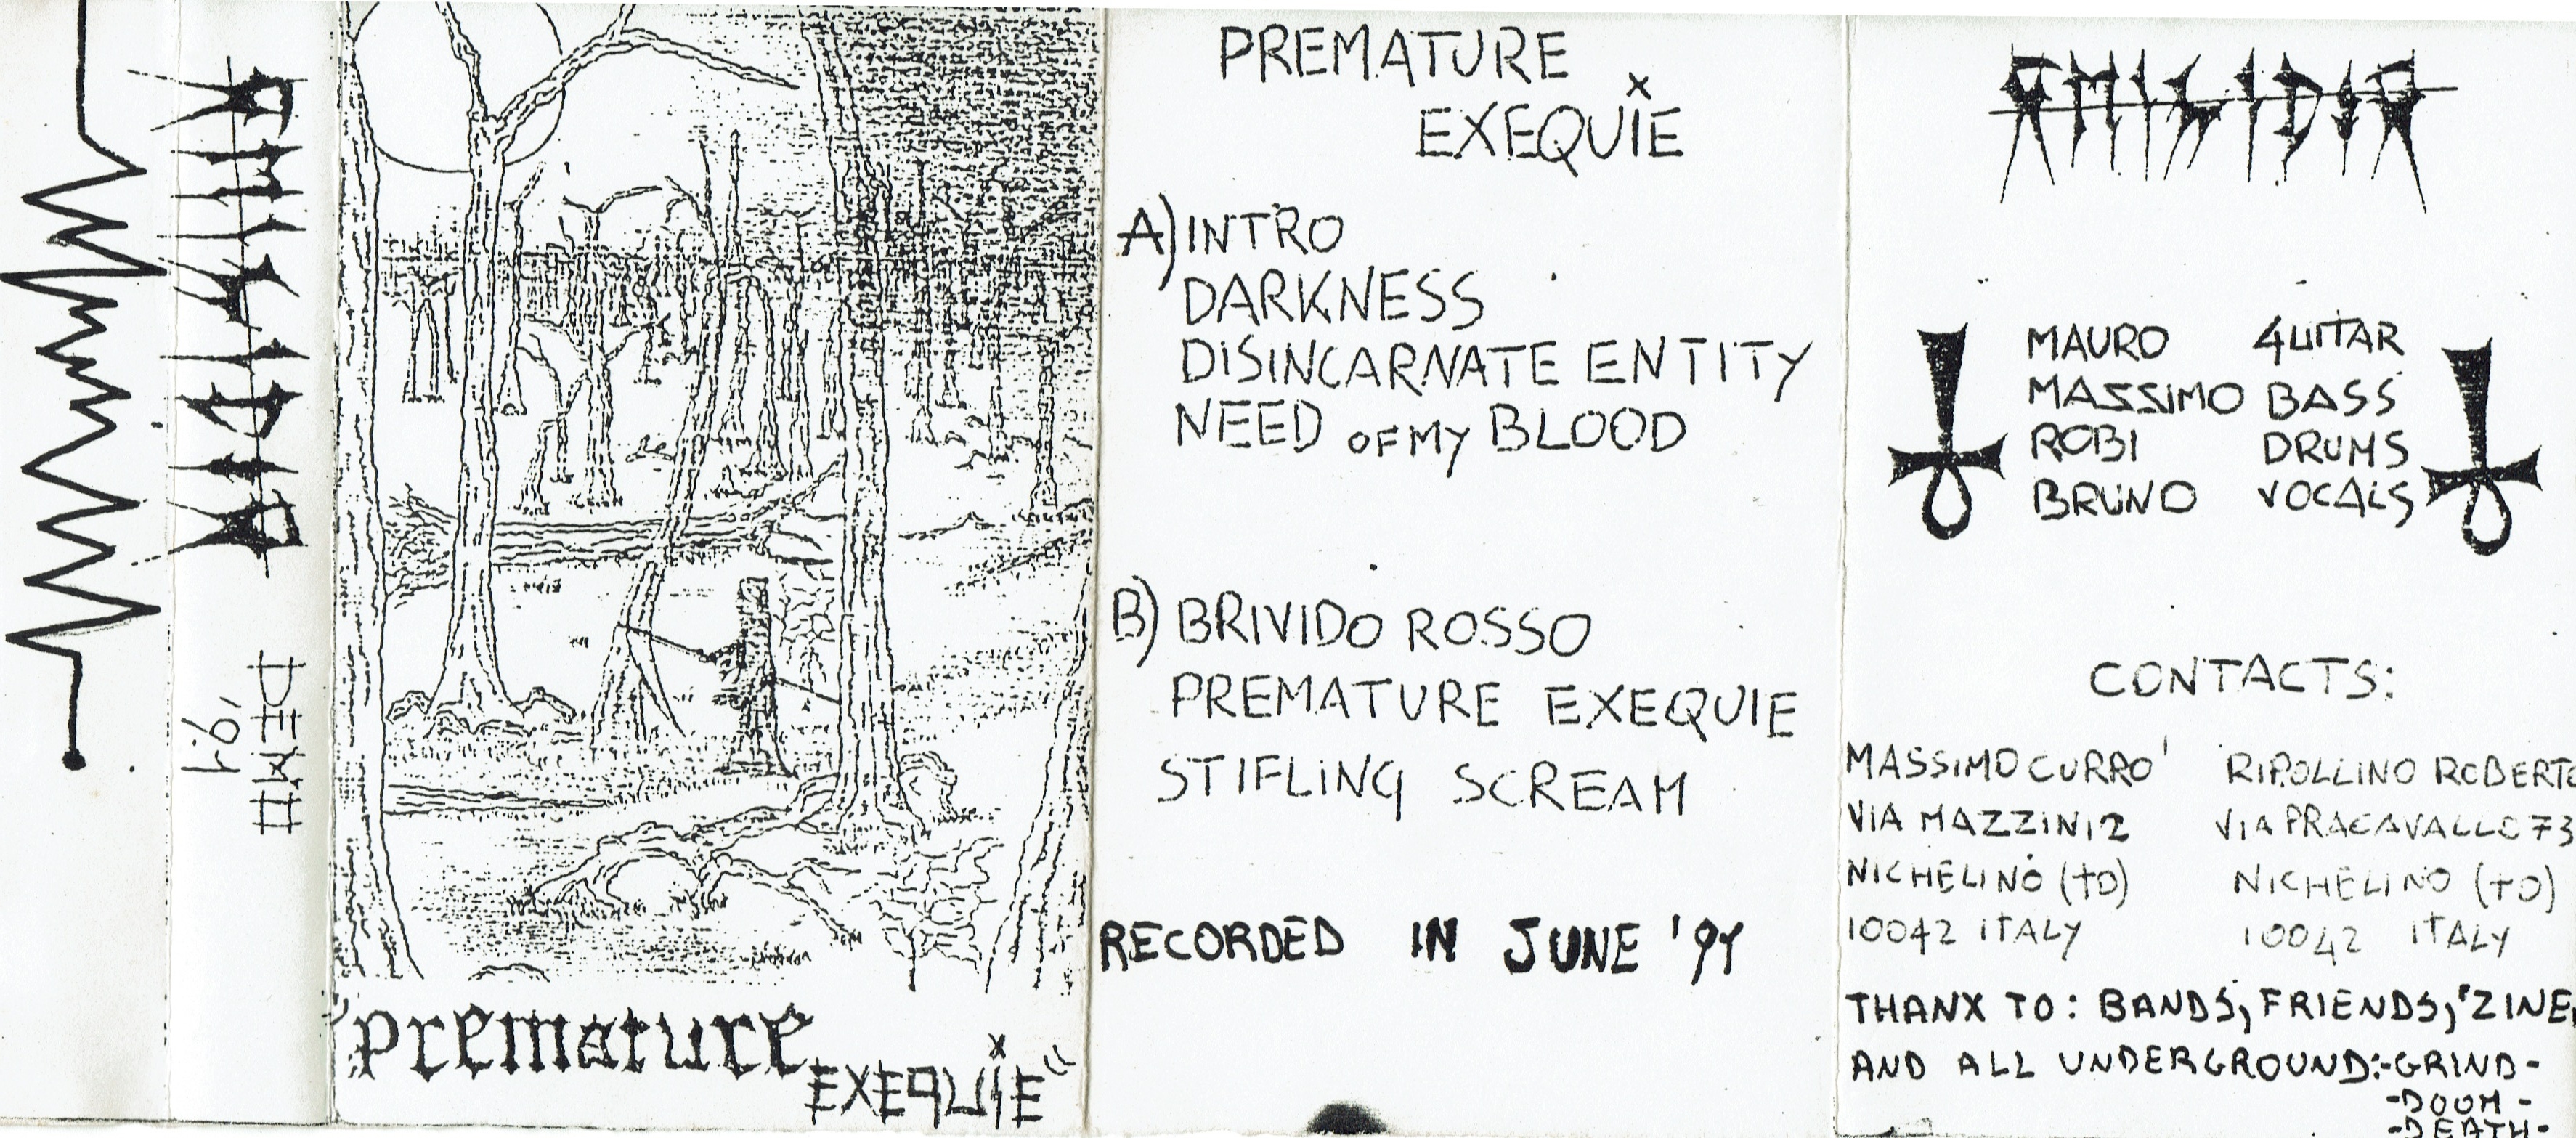 DEMO
'91
"PREMATURE
EXEQUIE"
PREMATURE
EXEQUIE
A) INTRO
DARKNESS
DISINCARNATE ENTITY
NEED OF MY BLOOD
B) BRIVIDO ROSSO
PREMATURE EXEQUIE
STIFLING SCREAM
RECORDED IN JUNE '91
MAURO GUITAR
MASSIMO BASS
ROBI DRUMS
BRUNO VOCALS
CONTACTS:
MASSIMO CURRO'
VIA MAZZINI 2
NICHELINO (TO)
10042 ITALY
RIPOLLINO ROBERTO
VIA PRACAVALLO 73
NICHELINO (TO)
10042 ITALY
THANX TO: BANDS, FRIENDS, 'ZINE,
AND ALL UNDERGROUND:-GRIND-
-DOOM-
-DEATH-